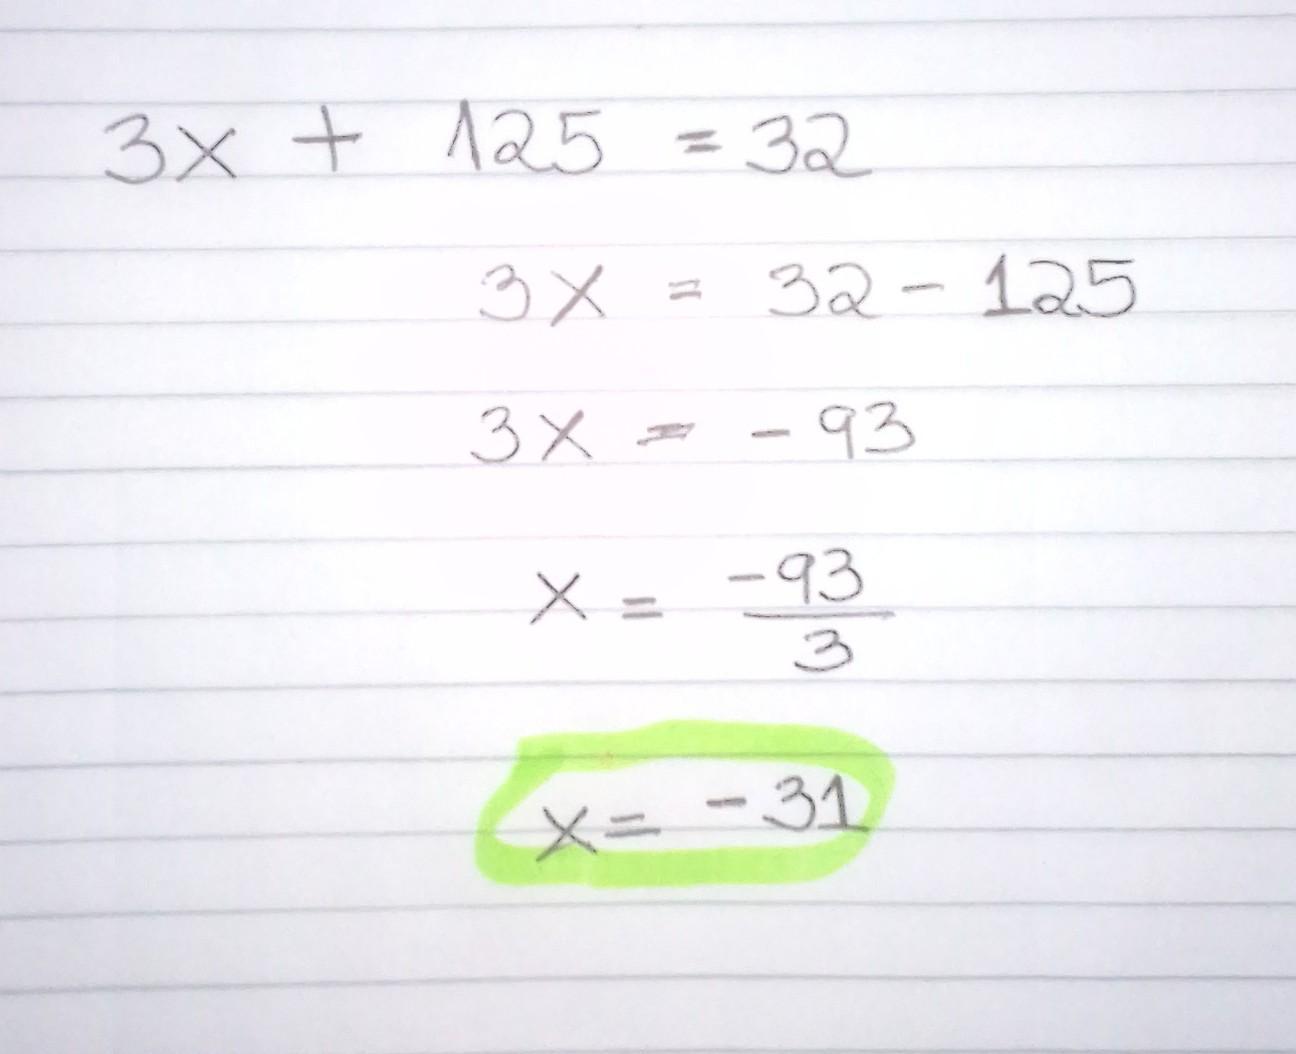 3x + 125 = 32
3x = 32 - 125
3x = - 93
x = -93
3
x = - 31